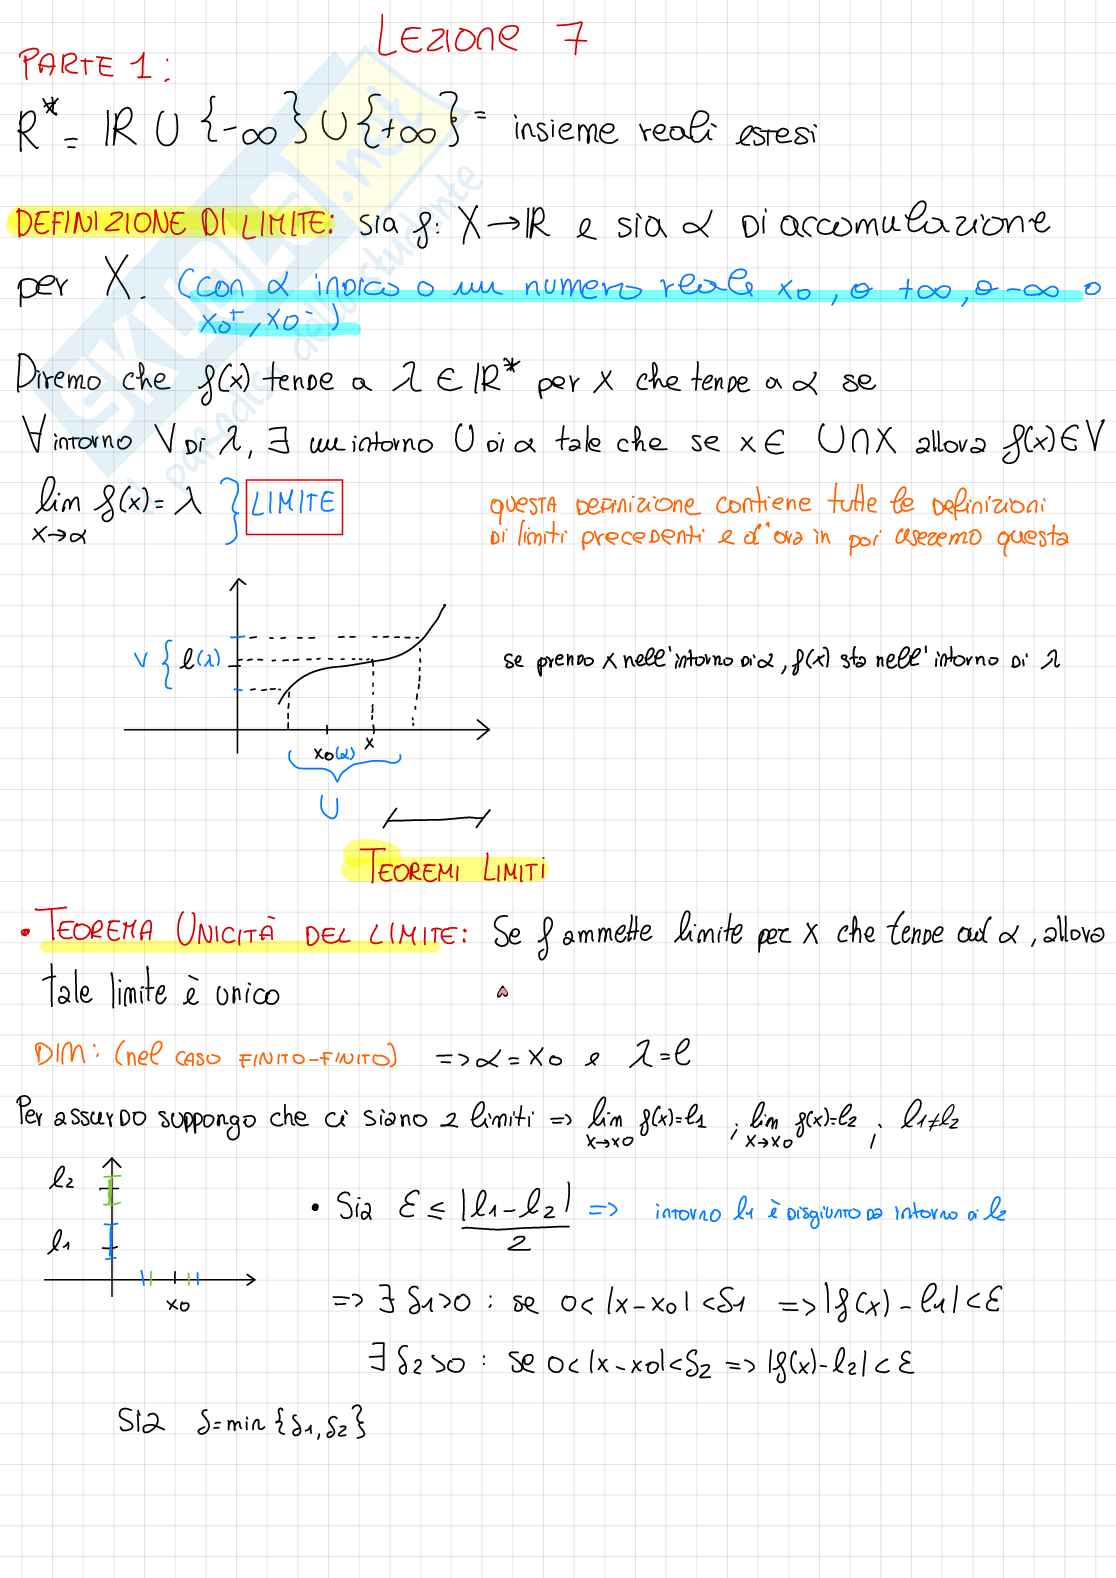 Lezione 7
PARTE 1:
R* = ℝ ∪ {-∞} ∪ {+∞} = insieme reali estesi
DEFINIZIONE DI LIMITE: sia f: X→ℝ e sia α di accomulazione
per X. (con α indico o un numero reale x0, o +∞, o -∞ o
x0⁺, x0⁻)
Diremo che f(x) tende a λ ∈ ℝ* per x che tende a α se
∀ intorno V di λ, ∃ un intorno U di α tale che se x ∈ U∩X allora f(x)∈V
lim f(x) = λ } LIMITE
x→α
questa definizione contiene tutte le definizioni
di limiti precedenti e d'ora in poi useremo questa
V { l(λ)
se prendo x nell'intorno di α, f(x) sta nell'intorno di λ
x0(α) x
U
TEOREMI LIMITI
• TEOREMA UNICITÀ DEL LIMITE: Se f ammette limite per x che tende ad α, allora
tale limite è unico
DIM: (nel caso FINITO-FINITO) => α = x0 e λ = l
Per assurdo suppongo che ci siano 2 limiti => lim f(x)=l1 ; lim f(x)=l2 ; l1≠l2
x→x0 x→x0
l2
• Sia ε ≤ |l1-l2| / 2 => intorno l1 è disgiunto da intorno di l2
l1
x0
=> ∃ δ1>0 : se 0<|x-x0|<δ1 => |f(x)-l1|<ε
∃ δ2>0 : se 0<|x-x0|<δ2 => |f(x)-l2|<ε
Sia δ=min{δ1,δ2}
SKUOLA.net